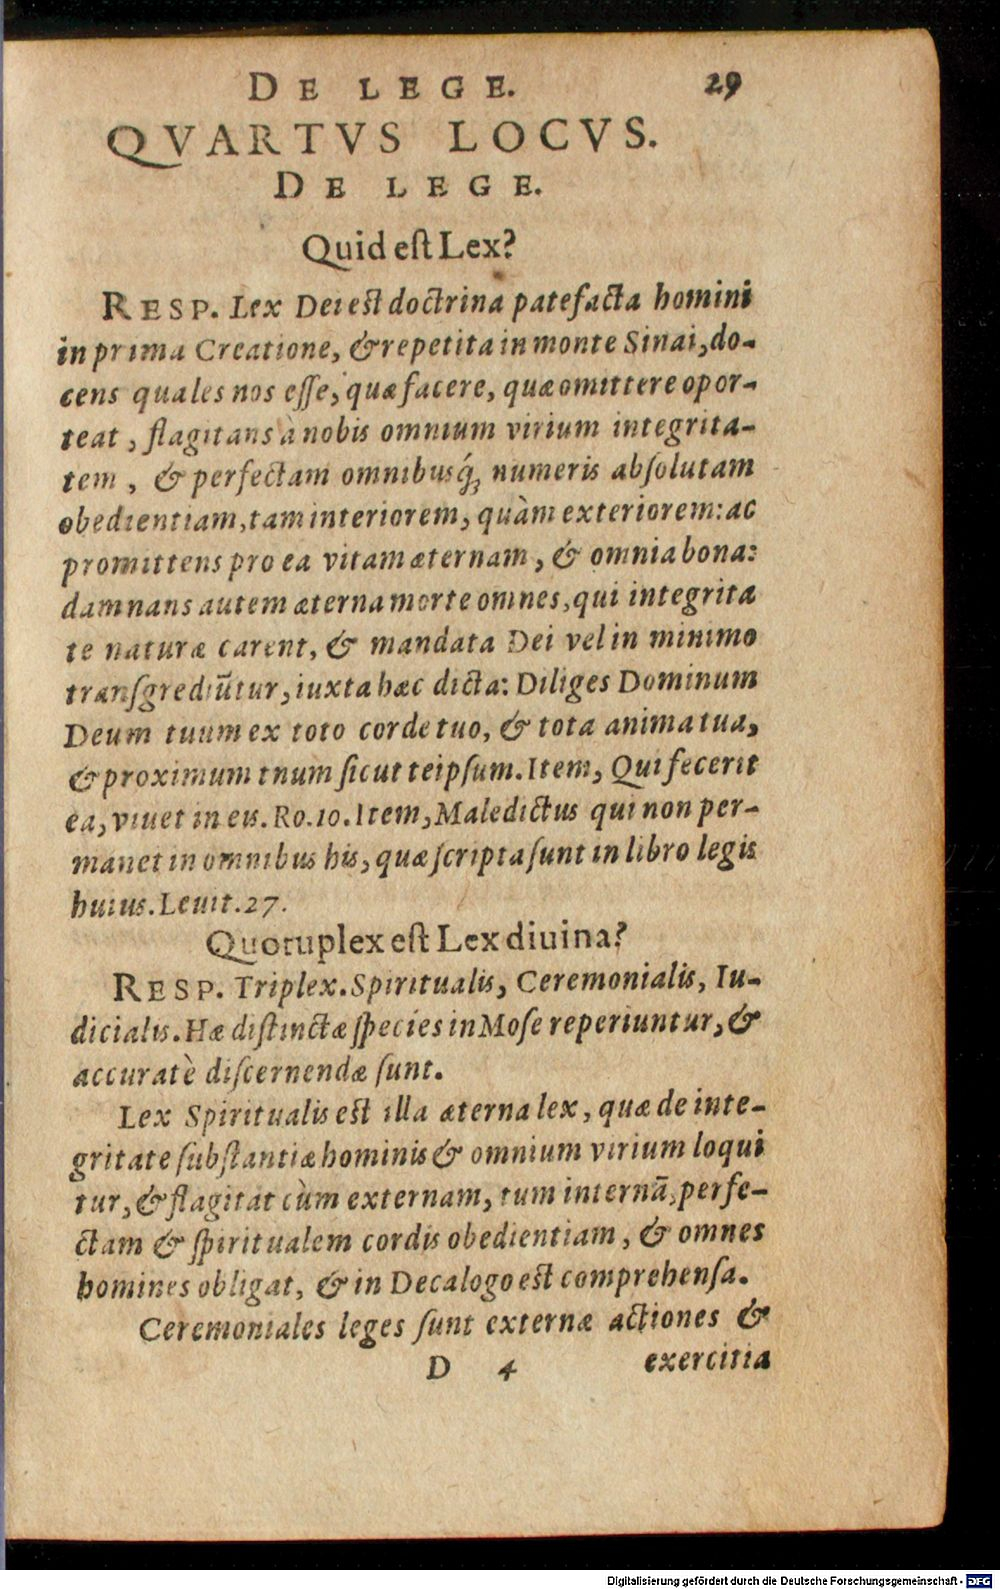 DE LEGE. 29
QVARTVS LOCVS.
DE LEGE.
Quid eſt Lex?
RESP. Lex Dei eſt doctrina patefacta homini
in prima Creatione, & repetita in monte Sinai, do-
cens quales nos eſſe, quæ facere, quæ omittere opor-
teat, flagitans à nobis omnium virium integrita-
tem, & perfectam omnibusq́ꝫ numeris abſolutam
obedientiam, tam interiorem, quàm exteriorem: ac
promittens pro ea vitam æternam, & omnia bona:
damnans autem æterna morte omnes, qui integrita
te naturæ carent, & mandata Dei vel in minimo
tranſgrediūtur, iuxta hæc dicta: Diliges Dominum
Deum tuum ex toto corde tuo, & tota anima tua,
& proximum tnum ſicut teipſum. Item, Qui fecerit
ea, viuet in eis. Ro. 10. Item, Maledictus qui non per-
manet in omnibus his, quæ ſcripta ſunt in libro legis
huius. Leuit. 27.
Quotuplex eſt Lex diuina?
RESP. Triplex. Spiritualis, Ceremonialis, Iu-
dicialis. Hæ diſtinctæ ſpecies in Moſe reperiuntur, &
accuratè diſcernendæ ſunt.
Lex Spiritualis eſt illa æterna lex, quæ de inte-
gritate ſubſtantiæ hominis & omnium virium loqui
tur, & flagitat cùm externam, tum internā, perfe-
ctam & ſpiritualem cordis obedientiam, & omnes
homines obligat, & in Decalogo eſt comprehenſa.
Ceremoniales leges ſunt externæ actiones &
D 4 exercitia
Digitalisierung gefördert durch die Deutsche Forschungsgemeinschaft - DFG